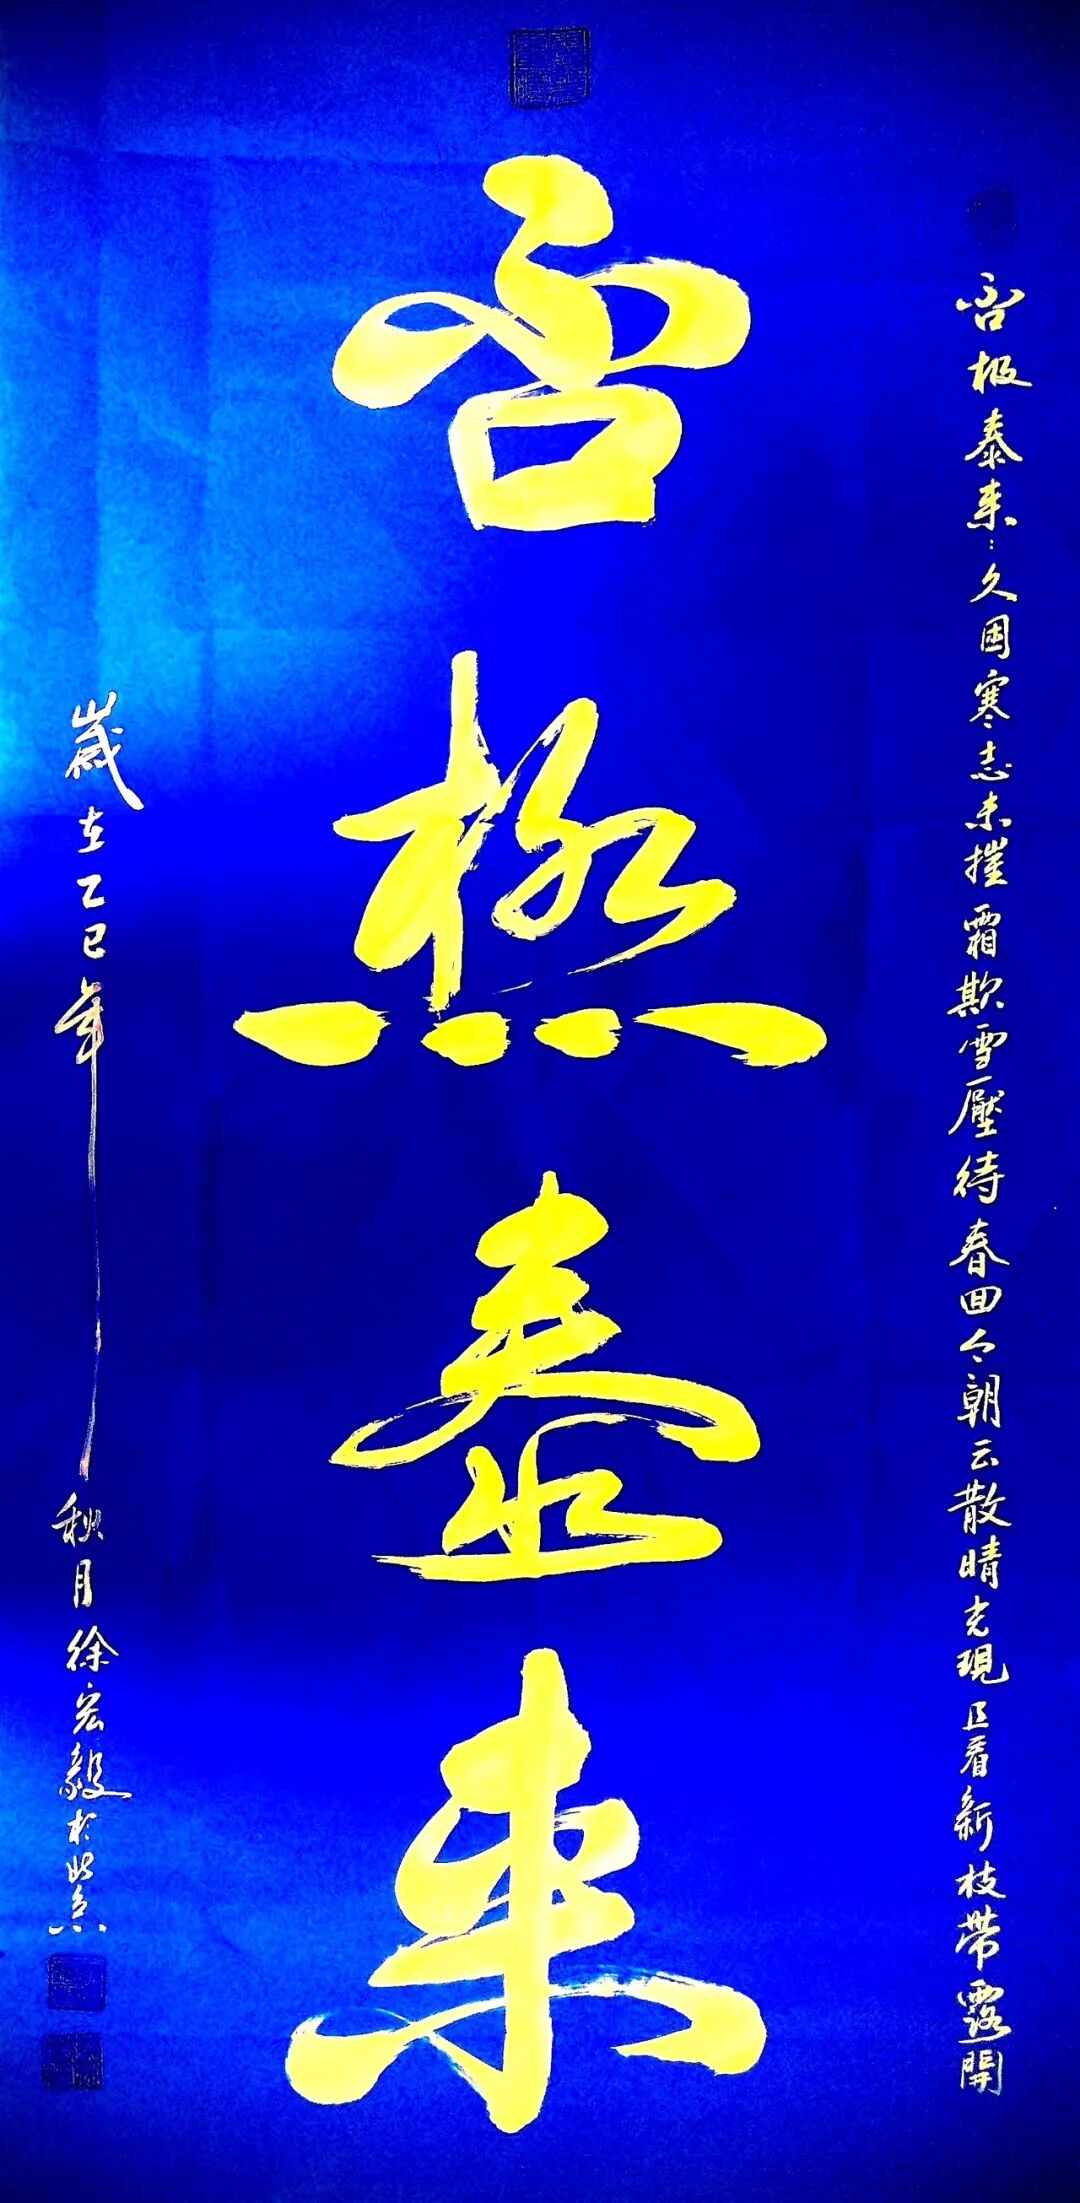 否极泰来：久困寒志未摧霜欺雪壓待春回今朝云散晴光現且看新枝帶露開
否極泰来
歲在乙巳年秋月徐宏毅於北京